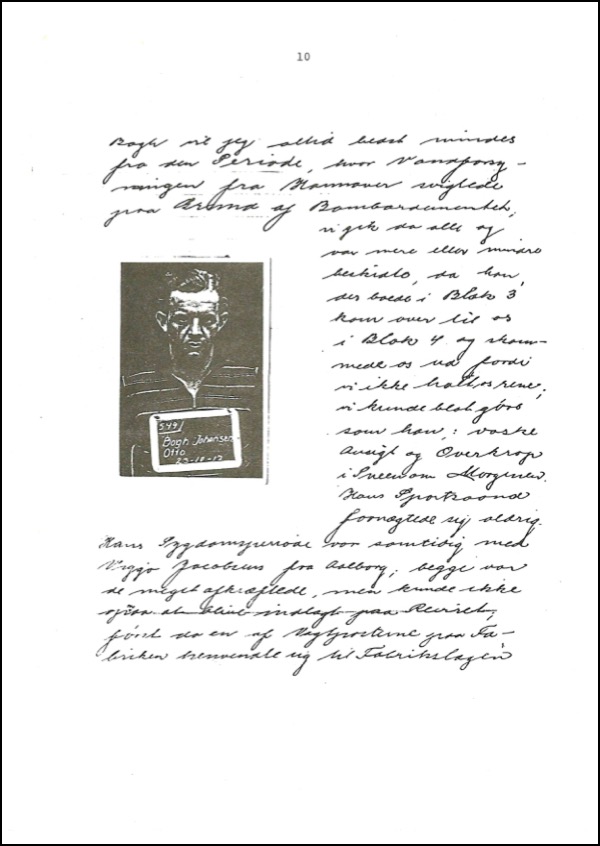 10
Bagh vil jeg altid bedst mindes
fra den Periode, hvor Vandforsy-
ningen fra Hannover svigtede
paa Grund af Bombardementet,
vi gik da alle og
var mere eller mindre
beskidte, da han,
der boede i Blok 3
kom over til os
i Blok 4 og skam-
mede os ud fordi
vi ikke holdt os rene;
vi kunde blot gøre
som han,: vaske
Ansigt og Overkrop
i Sneen om Morgenen.
Hans Sportsaand
fornægtede sig aldrig.
5491
Bagh Johansen
Otto
Hans Sygdomsperiode var samtidig med
Viggo Jacobsens fra Aalborg; begge var
de meget afkræftede, men kunde ikke
opnaa at blive indlagt paa Reviret,
først da en af Vagtposterne paa Fa-
briken henvendte sig til Fabrikslægen